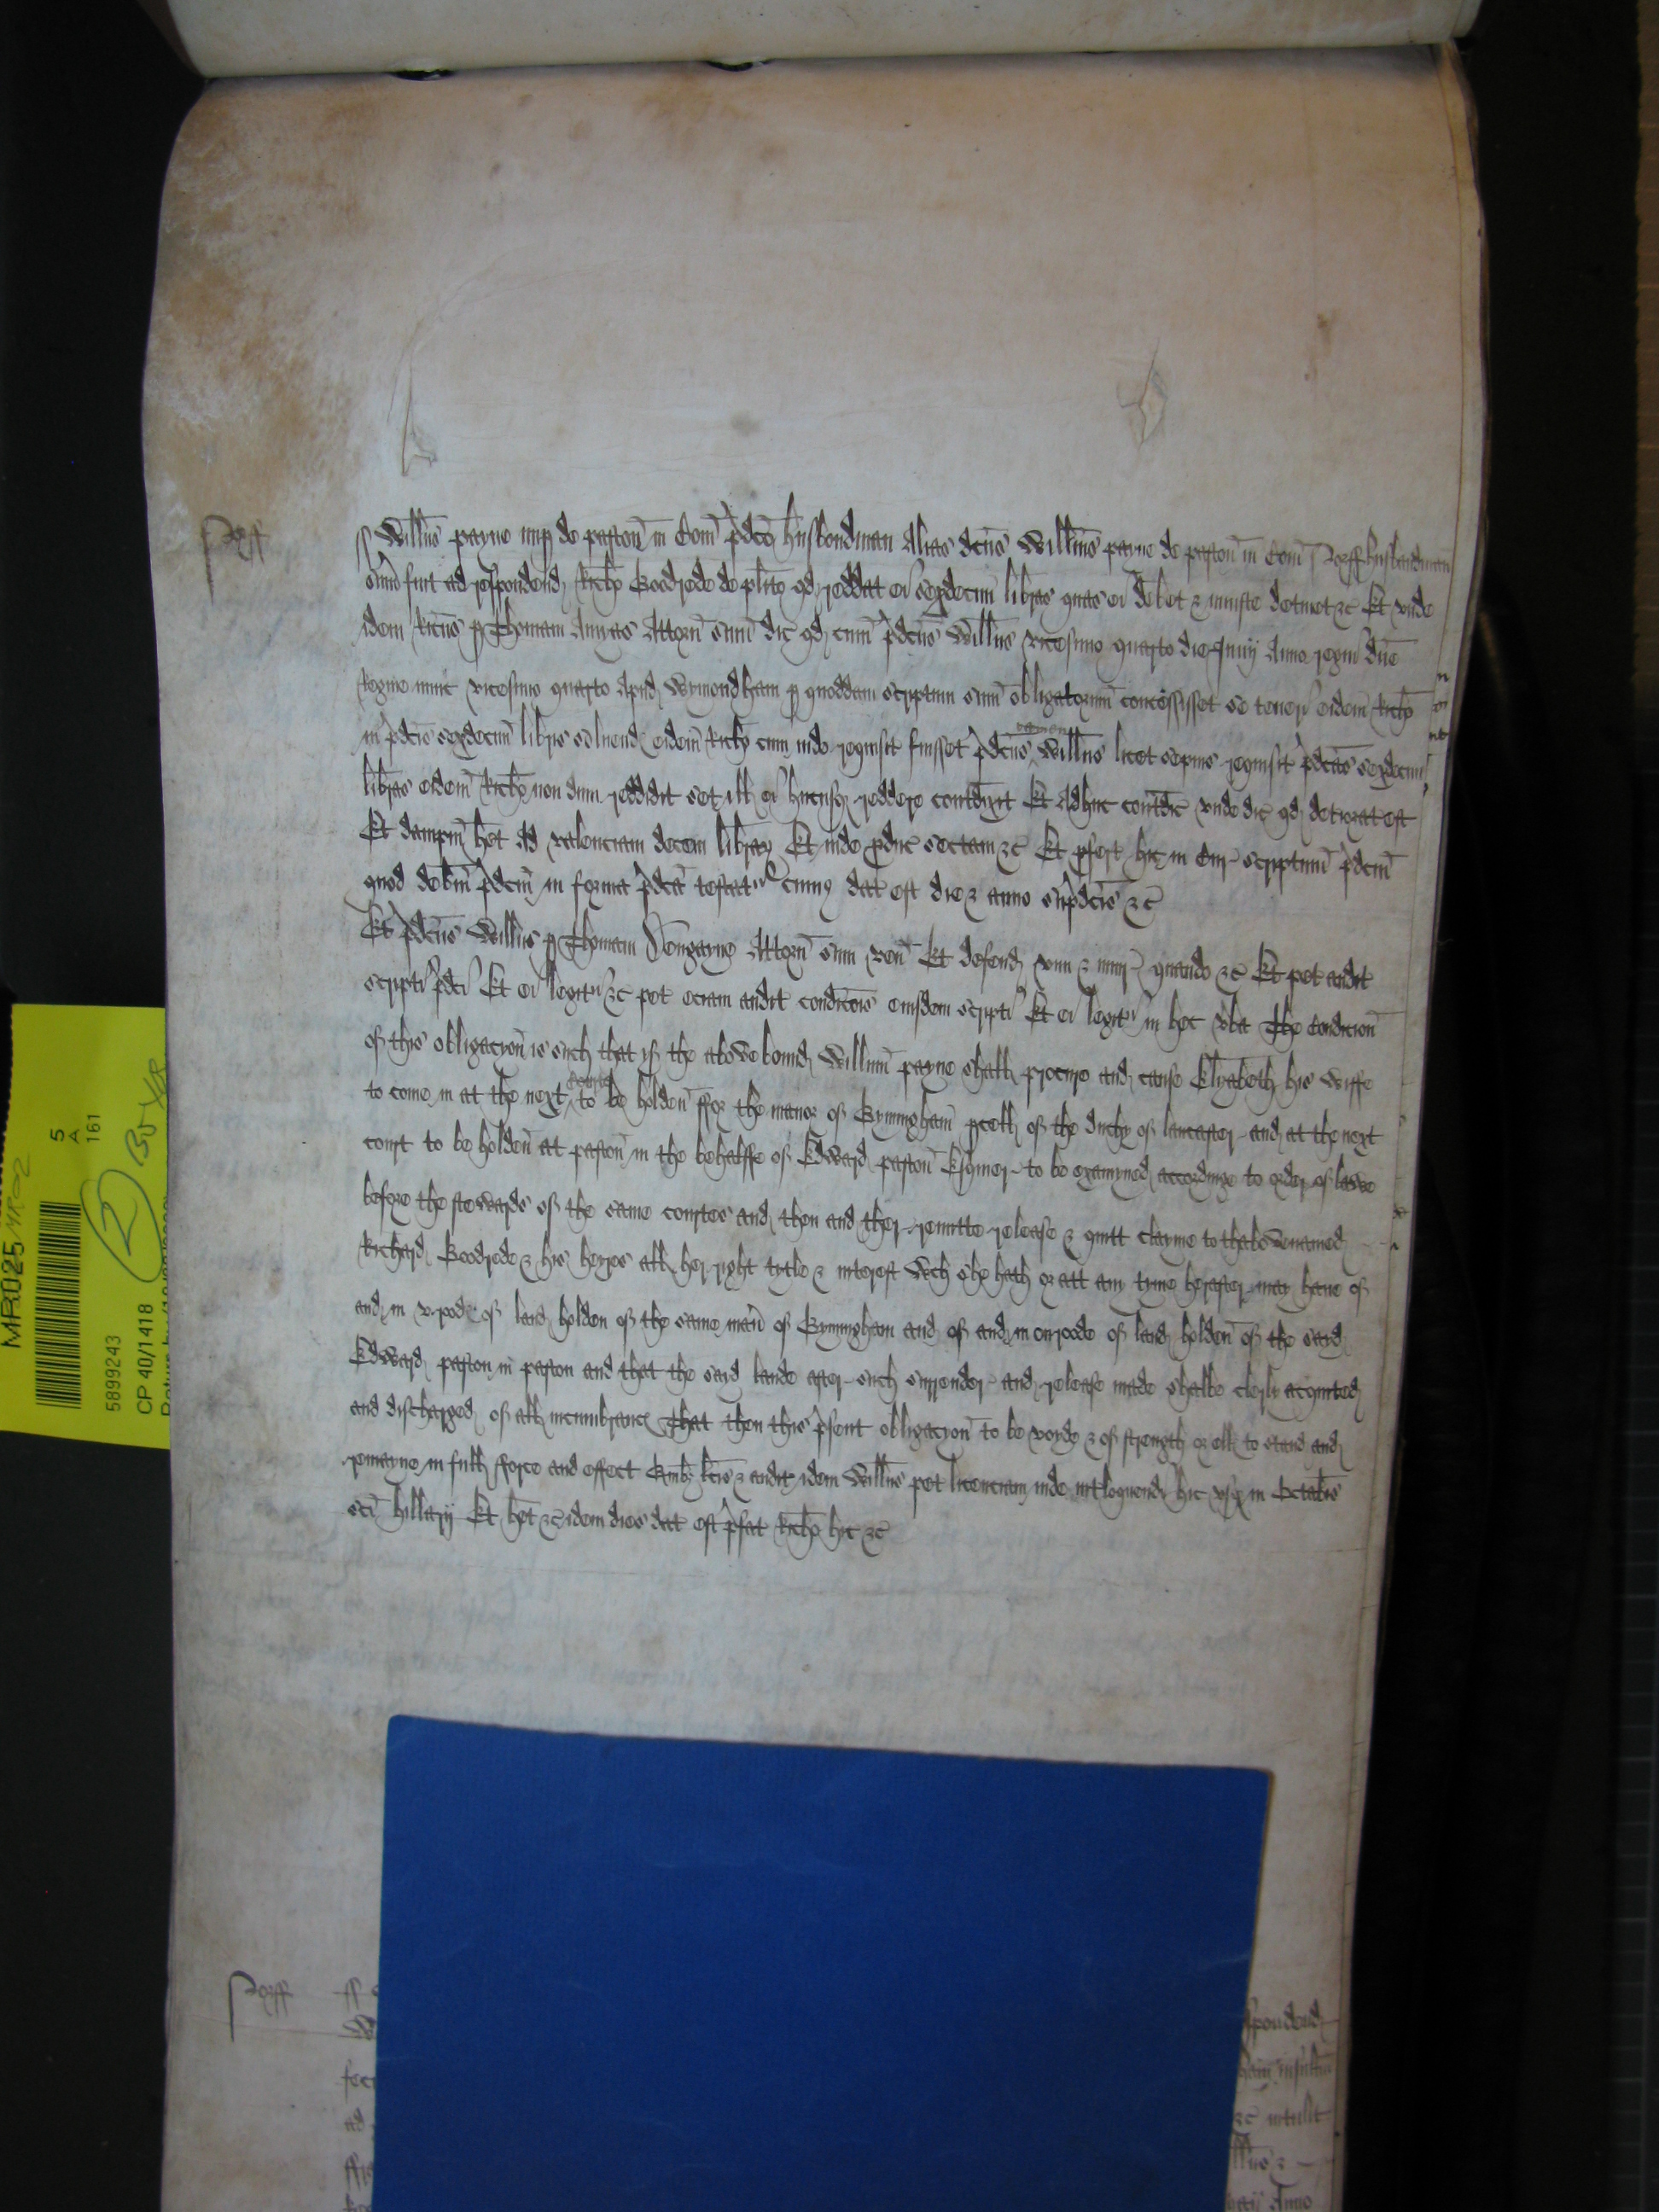 Norff
Willus payne nup de paston in Com pdco husbondman Alias dcus Willmus payne de paston in Com Norff husbandman
sum fuit ad respondend Rico Goodrede de plito qd reddat ei sexdecim libras quas ei debet & iniuste detinet &c Et unde
idem Ricus p Thomam Attorn suu dic qd cum pdcus Willus vicesimo quarto die Junij Anno regni dne
Regine nunc vicesimo quarto Apud Wymondham p quoddam scriptum suu obligatorium concessisset se teneri eidem Rico
in pdcis sexdecim libris solvend eidem Rico cum inde requisit fuisset pdcus tamen Willus licet sepius requisit pdcas sexdecim
libras eidem Rico non dum reddidit set ill ei hucusq reddere contdixit Et Adhuc contdic unde dic qd deteriorat est
Et dampnu het Ad valenciam decem librar Et inde pduc sectam &c Et pfert hic in Cur scriptum pdcm
quod debm pdcm in forma pdca testatr cuius dat est die & anno supdcis &c
Et pdcus Willus p Thomam Attorn suu ven Et defend vim & iniur quando &c Et pet audit
scripti pdci Et ei legitr &c pet eciam audit condicois eiusdem scripti Et ei legitr in hec vba The Condicion
of this obligacyon is such that yf the above bound Willum payne shall procure and cause Elyzabeth his wiffe
to come in at the next courte to be holden ffor the manor of Gymingham pcell of the duchy of lancaster and at the next
court to be holden at paston in the behalffe of Edward paston Esquier to be examyned accordinge to order of lawe
before the stewards of the same courtes and then and ther remitte release & quitt clayme to thabovenamed
Richard Goodrede & his heyres all her right tytle & interest wch she hath or att any tyme herafter may have of
and in v rode of land holden of the same man of Gymingham and of and in on roode of land holden of the said
Edward paston in paston and that the said lande after such surrender and release made shalbe clerly acquited
and discharged of all incumbranc That then this psent obligacyon to be voyde & of strength or ell to stand and
remayne in full fforce and effect Quib lcis & audit idem Willus pet licenciam inde intloquendi hic usq in Octabis
sci hillarij Et het &c idem dies dat est pfat Rico hic &c
Norff
CP 40/1418
5899243
5
A
161
MR025